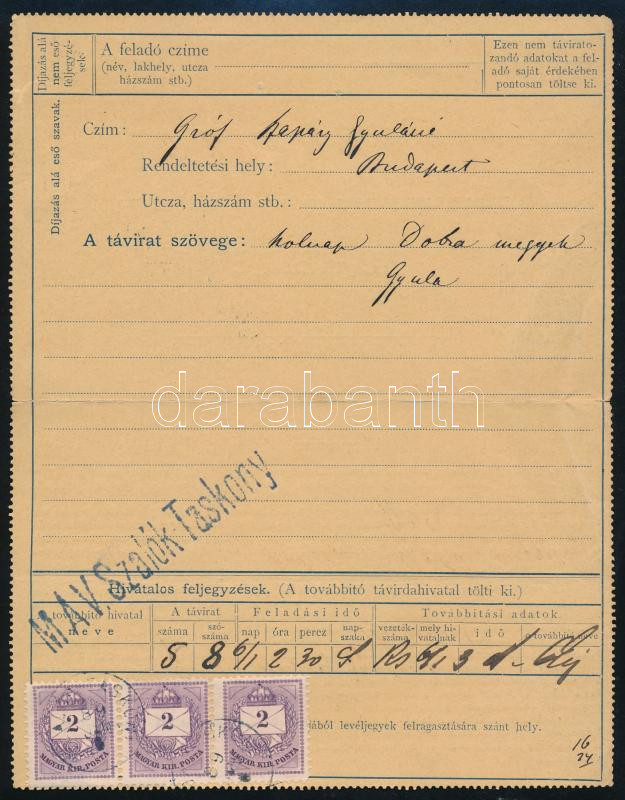 Díjazás alá nem eső feljegyzések.
A feladó czíme
(név, lakhely, utcza
házszám stb.)
Ezen nem távirato-
zandó adatokat a fel-
adó saját érdekében
pontosan töltse ki.
Díjazás alá eső szavak.
Czím: Gróf Gyuláné
Rendeltetési hely: Budapest
Utcza, házszám stb.:
A távirat szövege: holnap Dobra megyek
Gyula
darabanth.com
MAV. Szalók-Taskony
Hivatalos feljegyzések. (A továbbitó távirdahivatal tölti ki.)
továbbitó hivatal
neve
A távirat
Feladási idő
Továbbitási adatok
száma
szó-
száma
nap
óra
perez
nap-
szaka
vezeték-
száma
mely hi-
vatalnak
idő
a továbbitó neve
5 8 6/1 2 30 6/1 3
2 2 2
MAGYAR KIR. POSTA MAGYAR KIR. POSTA MAGYAR KIR. POSTA
ából levéljegyek felragasztására szánt hely.
16
24